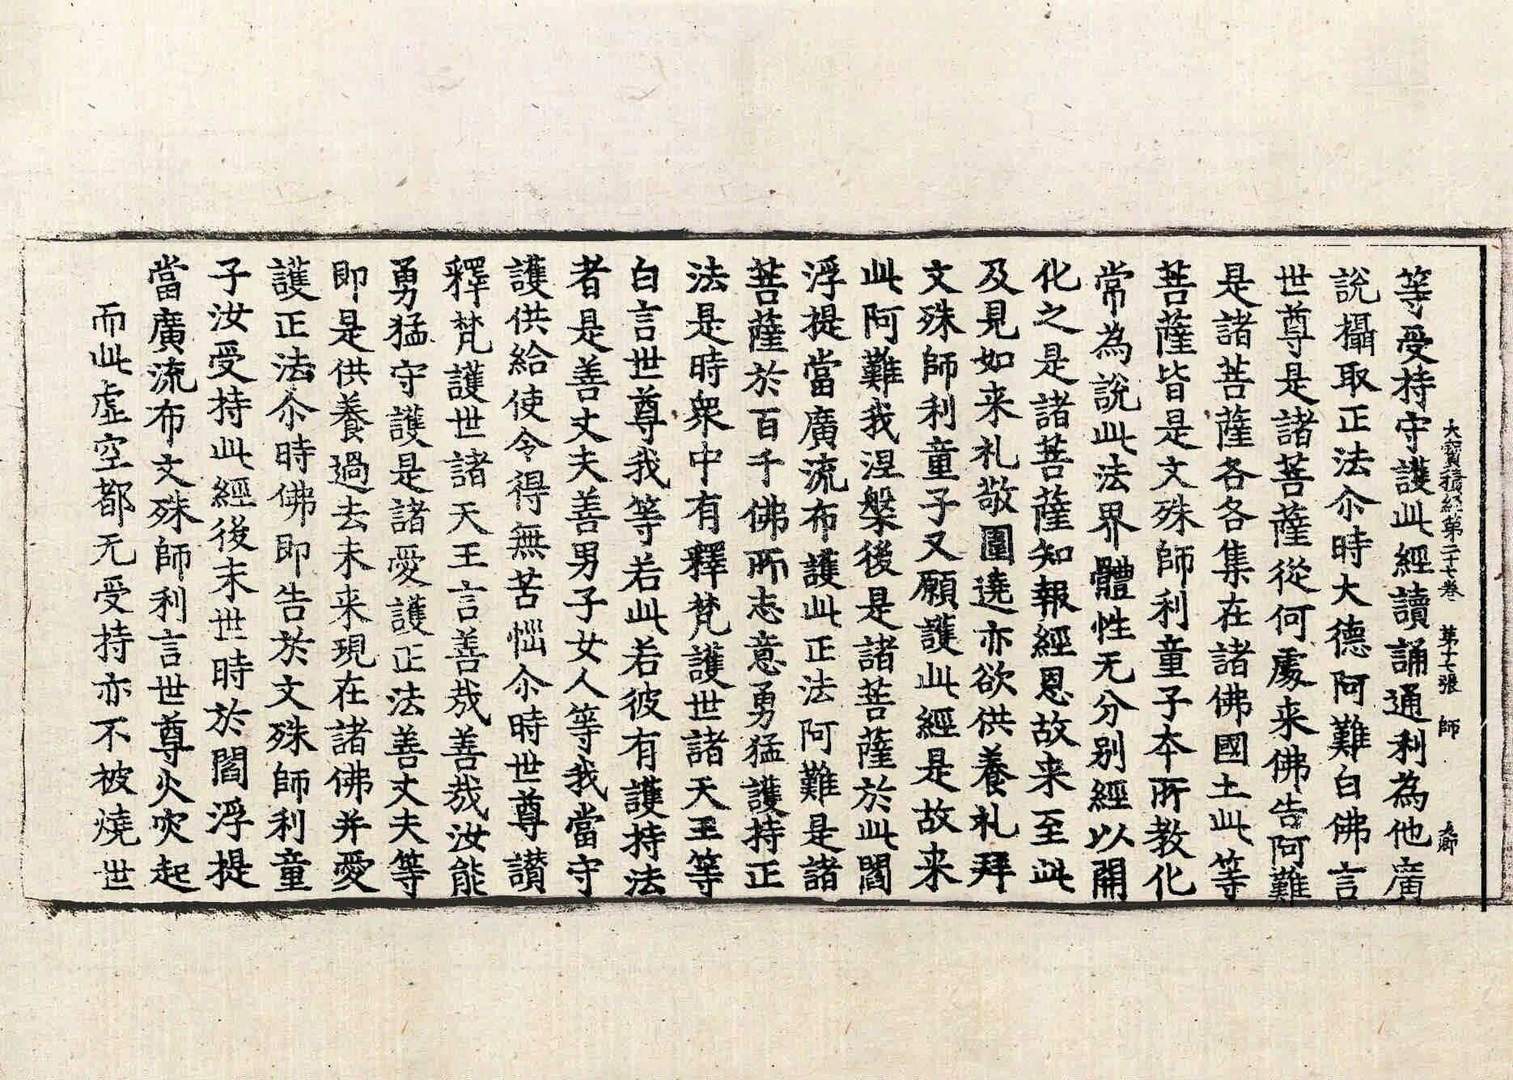 大寶積經第二十七卷 第十七張 師
等受持守護此經讀誦通利為他廣
說攝取正法尒時大德阿難白佛言
世尊是諸菩薩從何處来佛告阿難
是諸菩薩各各集在諸佛國土此等
菩薩皆是文殊師利童子夲所教化
常為說此法界體性无分别經以開
化之是諸菩薩知報經恩故来至此
及見如来礼敬圍遶亦欲供養礼拜
文殊師利童子又願護此經是故来
此阿難我涅槃後是諸菩薩於此閻
浮提當廣流布護此正法阿難是諸
菩薩於百千佛所志意勇猛護持正
法是時衆中有釋梵護世諸天王等
白言世尊我等若此若彼有護持法
者是善丈夫善男子女人等我當守
護供給使令得無苦惱尒時世尊讃
釋梵護世諸天王言善哉善哉汝能
勇猛守護是諸愛護正法善丈夫等
即是供養過去未来現在諸佛并愛
護正法尒時佛即告於文殊師利童
子汝受持此經後末世時於閻浮提
當廣流布文殊師利言世尊火灾起
而此虚空都无受持亦不被燒世